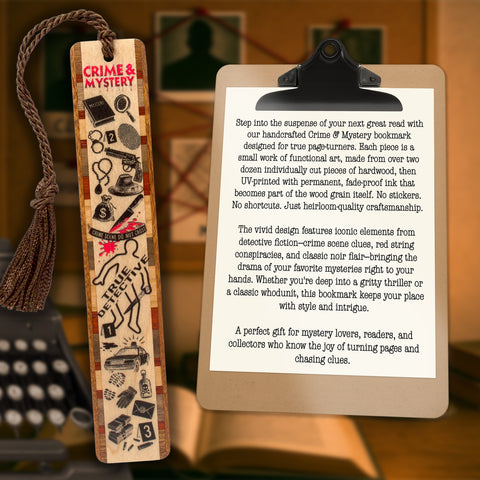 CRIME &
MYSTERY
2
CRIME SCENE DO NOT CROSS
TRUE
DETECTIVE
1
3
Step into the suspense of your next great read with
our handcrafted Crime & Mystery bookmark
designed for true page-turners. Each piece is a
small work of functional art, made from over two
dozen individually cut pieces of hardwood, then
UV-printed with permanent, fade-proof ink that
becomes part of the wood grain itself. No stickers.
No shortcuts. Just heirloom-quality craftsmanship.
The vivid design features iconic elements from
detective fiction—crime scene clues, red string
conspiracies, and classic noir flair—bringing the
drama of your favorite mysteries right to your
hands. Whether you're deep into a gritty thriller or
a classic whodunit, this bookmark keeps your place
with style and intrigue.
A perfect gift for mystery lovers, readers, and
collectors who know the joy of turning pages and
chasing clues.